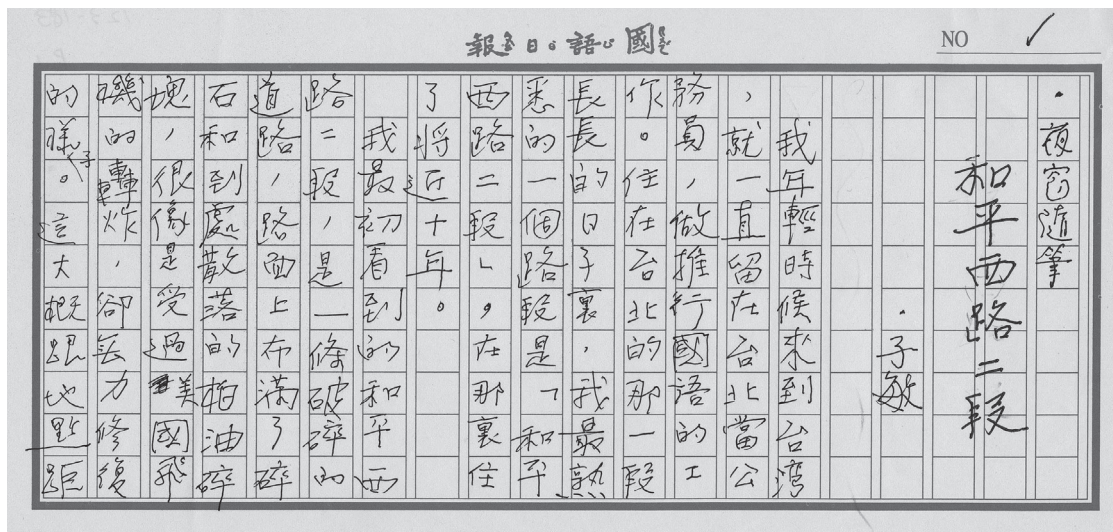 國語日報
NO
・夜窗隨筆
和平西路二段
・子敏
我年輕時候來到台灣
，就一直留在台北當公
務員，做推行國語的工
作。住在台北的那一段
長長的日子裏，我最熟
悉的一個路段是「和平
西路二段」。在那裏住
了將近十年。
我最初看到的和平西
路二段，是一條破碎的
道路，路面上布滿了碎
石和到處散落的柏油碎
塊，很像是受過美國飛
機的轟炸，卻無力修復
的樣子。這大概跟地點距